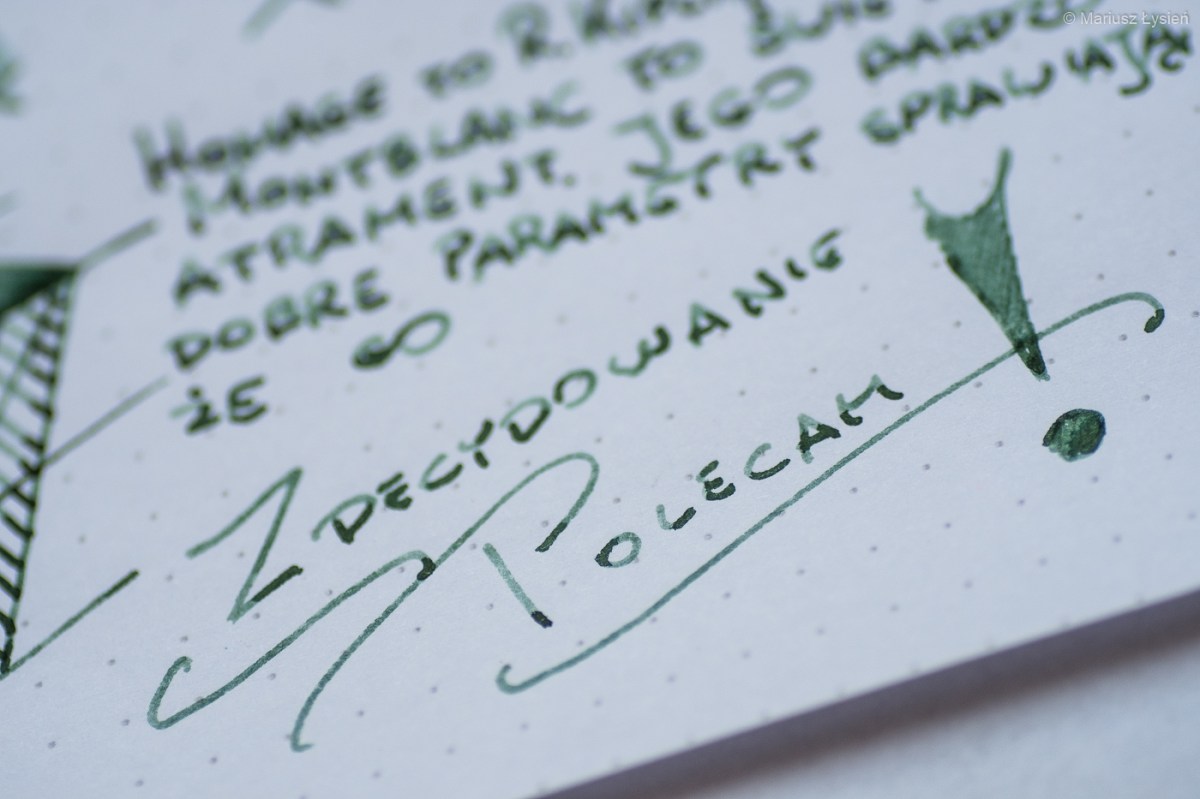 © Mariusz Łysień
HOMAGE TO R. KIPLI
MONTBLANC TO
ATRAMENT. JEGO BARDZO
DOBRE PARAMETRY SPRAWIAJĄ
ŻE GO
ZDECYDOWANIE
POLECAM!